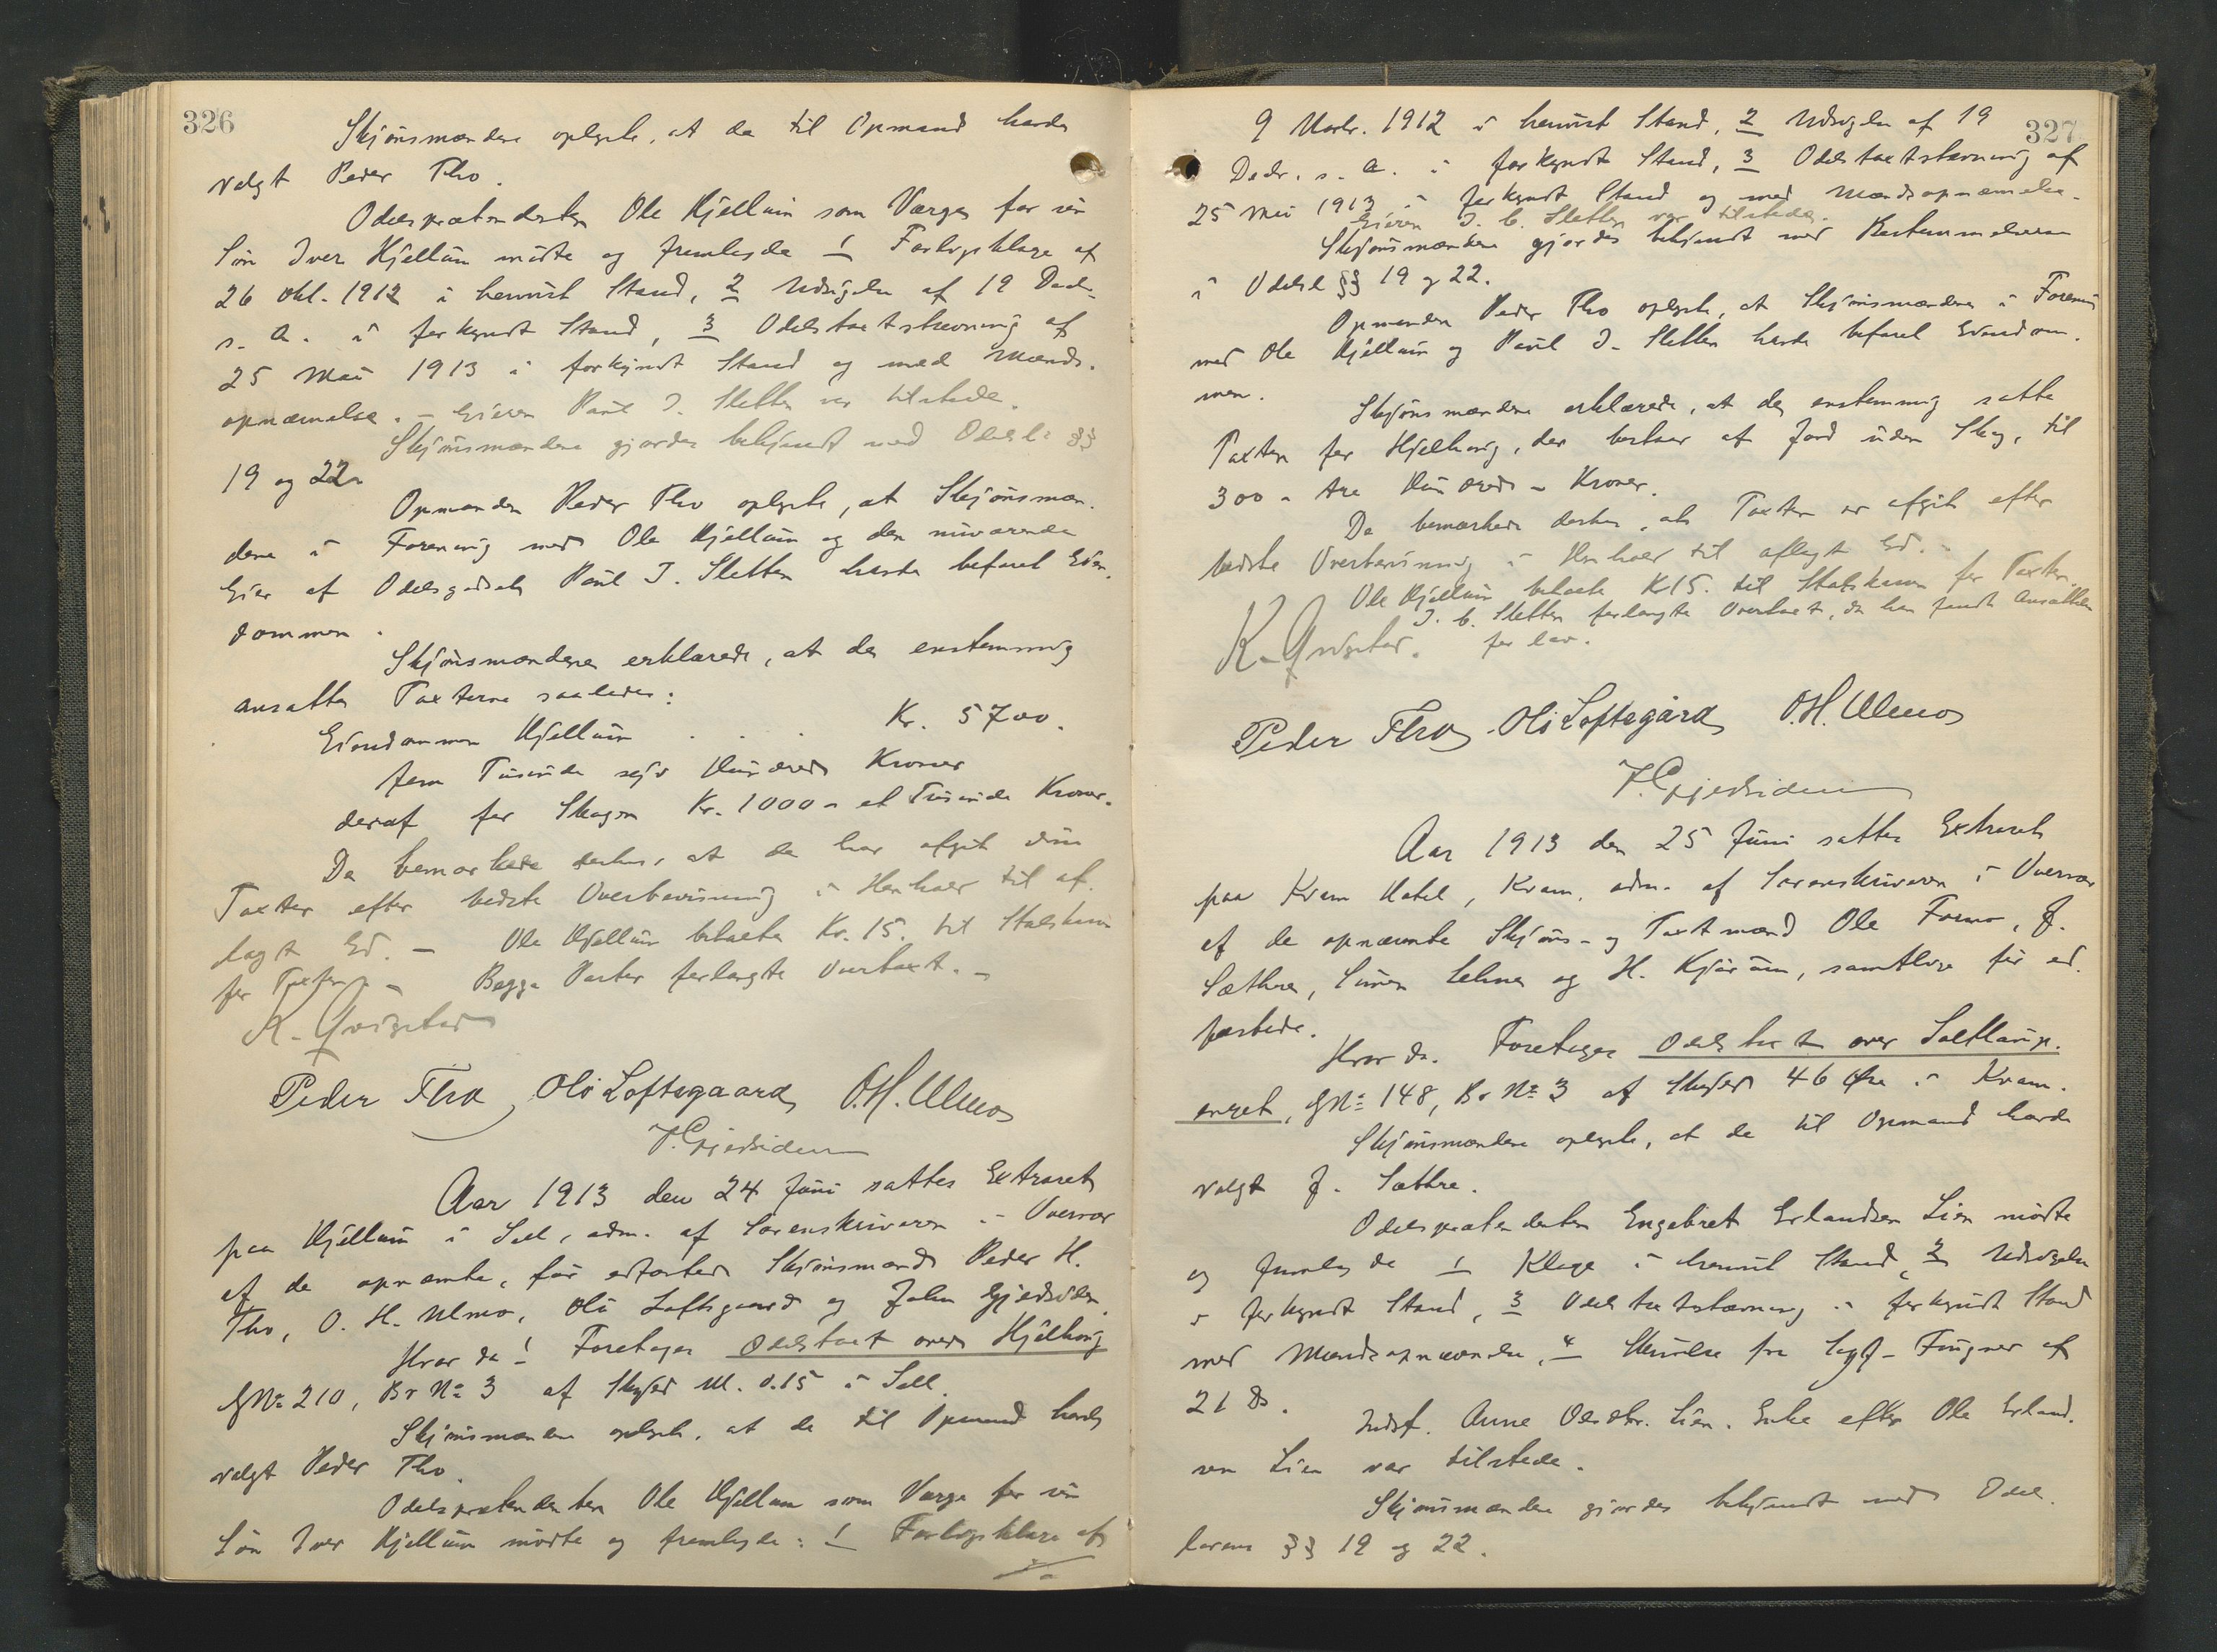 326
Skjønsmændene oplyste, at de til Opmand havde
valgt Peder Tho.
Odelsprætendenten Ole Kjellum som Værge for sin
Søn Iver Kjellum mødte og fremlagde 1 Forligsklage af
26 Okt. 1912 i henvist Stand, 2 Udsigelse af 19 Decbr.
s. A. i forkyndt Stand, 3 Odelstaxtstævning af
25 Mai 1913 i forkyndt Stand og med Mænds-
opnævnelse. – Eieren Paul J. Sletten var tilstede.
Skjønsmændene gjordes bekjendt med Odelsl. §§
19 og 22.
Opmanden Peder Tho oplyste, at Skjønsmæn-
dene i Forening med Ole Kjellum og den nuværende
Eier af Odelsgodset Paul J. Sletten havde befaret Eien-
dommen.
Skjønsmændene erklærede, at de enstemmig
ansatte Taxterne saaledes:
Eiendommen Kjellum . . . Kr. 5700.
fem Tusinde syv Hundrede Kroner
deraf for Skogen Kr. 1000 - et Tusinde Kroner.
De bemærkede derhos, at de har afgit sin
Taxter efter bedste Overbevisning i Henhold til af-
lagt Ed. – Ole Kjellum betalte Kr. 15. til Statskassen
for Taxten. – Begge Parter forlangte Overtaxt. –
K. Qvigstad
Peder Tho, Ole Loftsgaard, O. H. Ulmo
J. Gjedsiden
Aar 1913 den 24 Juni sattes Extraret
paa Kjellum i Sel, adm. af Sorenskriveren i Overvær
af de opnævnte, før edfæstede Skjønsmænd Peder H.
Tho, O. H. Ulmo, Ole Loftsgaard og John Gjedsiden.
Hvor da! Foretages Odelstaxt over Hjelhaug
GNo 210, BrNo 3 af Skyld M. 0.15 i Sell.
Skjønsmændene oplyste, at de til Opmand havde
valgt Peder Tho.
Odelsprætendenten Ole Kjellum som Værge for sin
Søn Iver Kjellum mødte og fremlagde: 1 Forligsklage af
327
9 Novbr. 1912 i henvist Stand, 2 Udsigelse af 19
Decbr. s. A. i forkyndt Stand, 3 Odelstaxtstævning af
25 Mai 1913 i forkyndt Stand og med Mændsopnævnelse.
Eieren J. C. Sletten var tilstede.
Skjønsmændene gjordes bekjendt med Bestemmelserne
i Odelsl §§ 19 og 22.
Opmanden Peder Tho oplyste, at Skjønsmændene i Forening
med Ole Kjellum og Paul J. Sletten havde befaret Eiendom-
men.
Skjønsmændene erklærede, at de enstemmig satte
Taxten for Hjelhaug, der bestaar af Jord uden Skog, til
300 - tre Hundrede - Kroner.
De bemærkede derhos, at Taxten er afgit efter
bedste Overbevisning i Henhold til aflagt Ed. –
Ole Kjellum betalte Kr 15. til Statskassen for Taxten.
J. C. Sletten forlangte Overtaxt, da han fandt Ansættelsen
for lav.
K. Qvigstad.
Peder Tho, Ole Loftsgård, O. H. Ulmo
J. Gjedsiden
Aar 1913 den 25 Juni sattes Extraret
paa Kvam Hotel, Kvam, adm. af Sorenskriveren i Overvær
af de opnævnte Skjøns- og Taxtmænd Ole Formo, J.
Sæthre, Simen Lehne og H. Kjørum, samtlige før ed-
fæstede.
Hvor da. Foretages Odelstaxt over
enget, GNo 148, BrNo 3 af Skyld 46 Øre i Kvam.
Skjønsmændene oplyste, at de til Opmand havde
valgt J. Sæthre.
Odelsprætendenten Engebret Erlandsen Lien mødte
og fremlagde 1 Klage i henvist Stand, 2 Udsigelse
i forkyndt Stand, 3 Odelstaxtstævning i forkyndt Stand
med Mændsopnævnelse, 4 Skrivelse fra Sagf. Fougner af
21 ds.
Indst. Anne Olsdtr. Lien, Enke efter Ole Erland-
sen Lien var tilstede.
Skjønsmændene gjordes bekjendt med Odels-
lovens §§ 19 og 22.